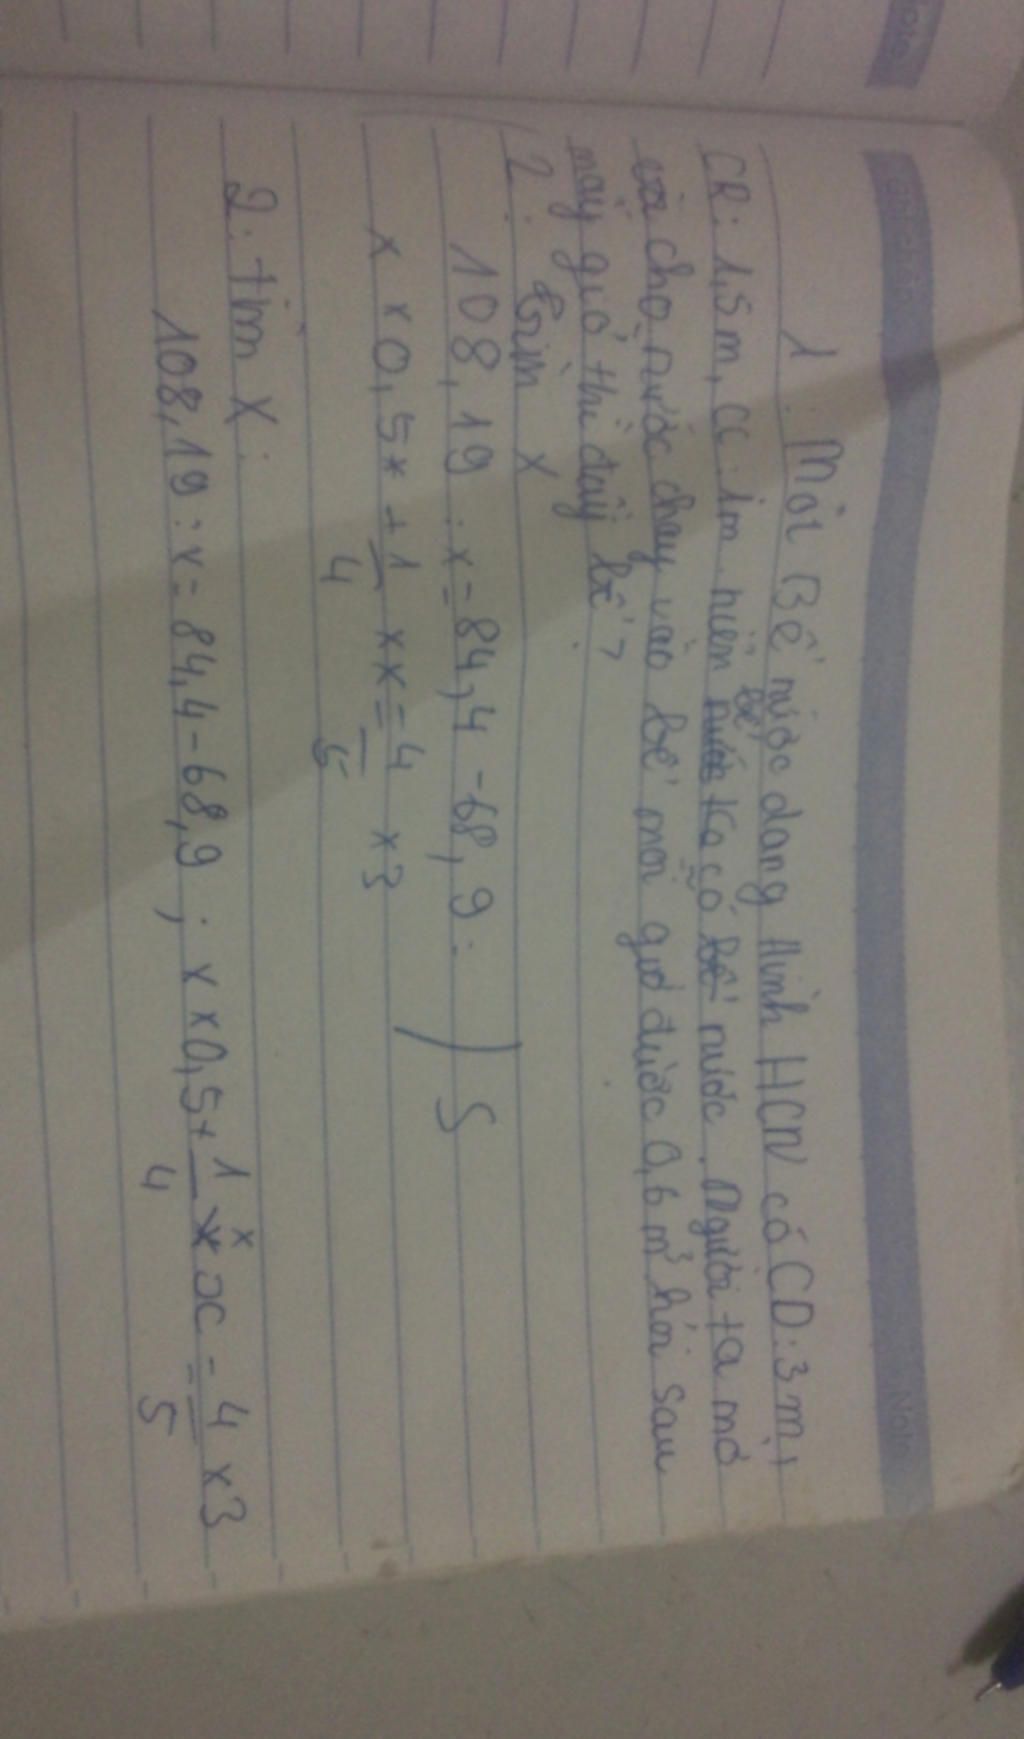 Note
1. Một Bể nước dạng hình HCN có CD: 3m,
CR: 1,5m, CC: 1m. hiện bể ko có nước. Người ta mở
vòi cho nước chảy vào bể mỗi giờ được 0,6 m³ hỏi sau
mấy giờ thì đầy bể?
2: Tìm x
108,19 : x = 84,4 - 68,9 : ) S
x x 0,5 * + 1/4 x x = 4/5 x 3
2: tìm X:
108,19 : x = 84,4 - 68,9 ; x x 0,5 + 1/4 x x = 4/5 x 3